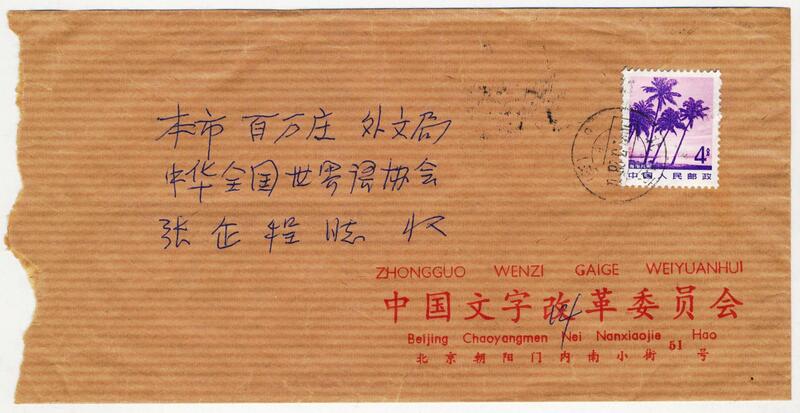 本市 百万庄 外文局
中华全国世界语协会
张企程 同志 收
4分
中国人民邮政
ZHONGGUO WENZI GAIGE WEIYUANHUI
中国文字改革委员会
Beijing Chaoyangmen Nei Nanxiaojie 51 Hao
北京朝阳门内南小街 号